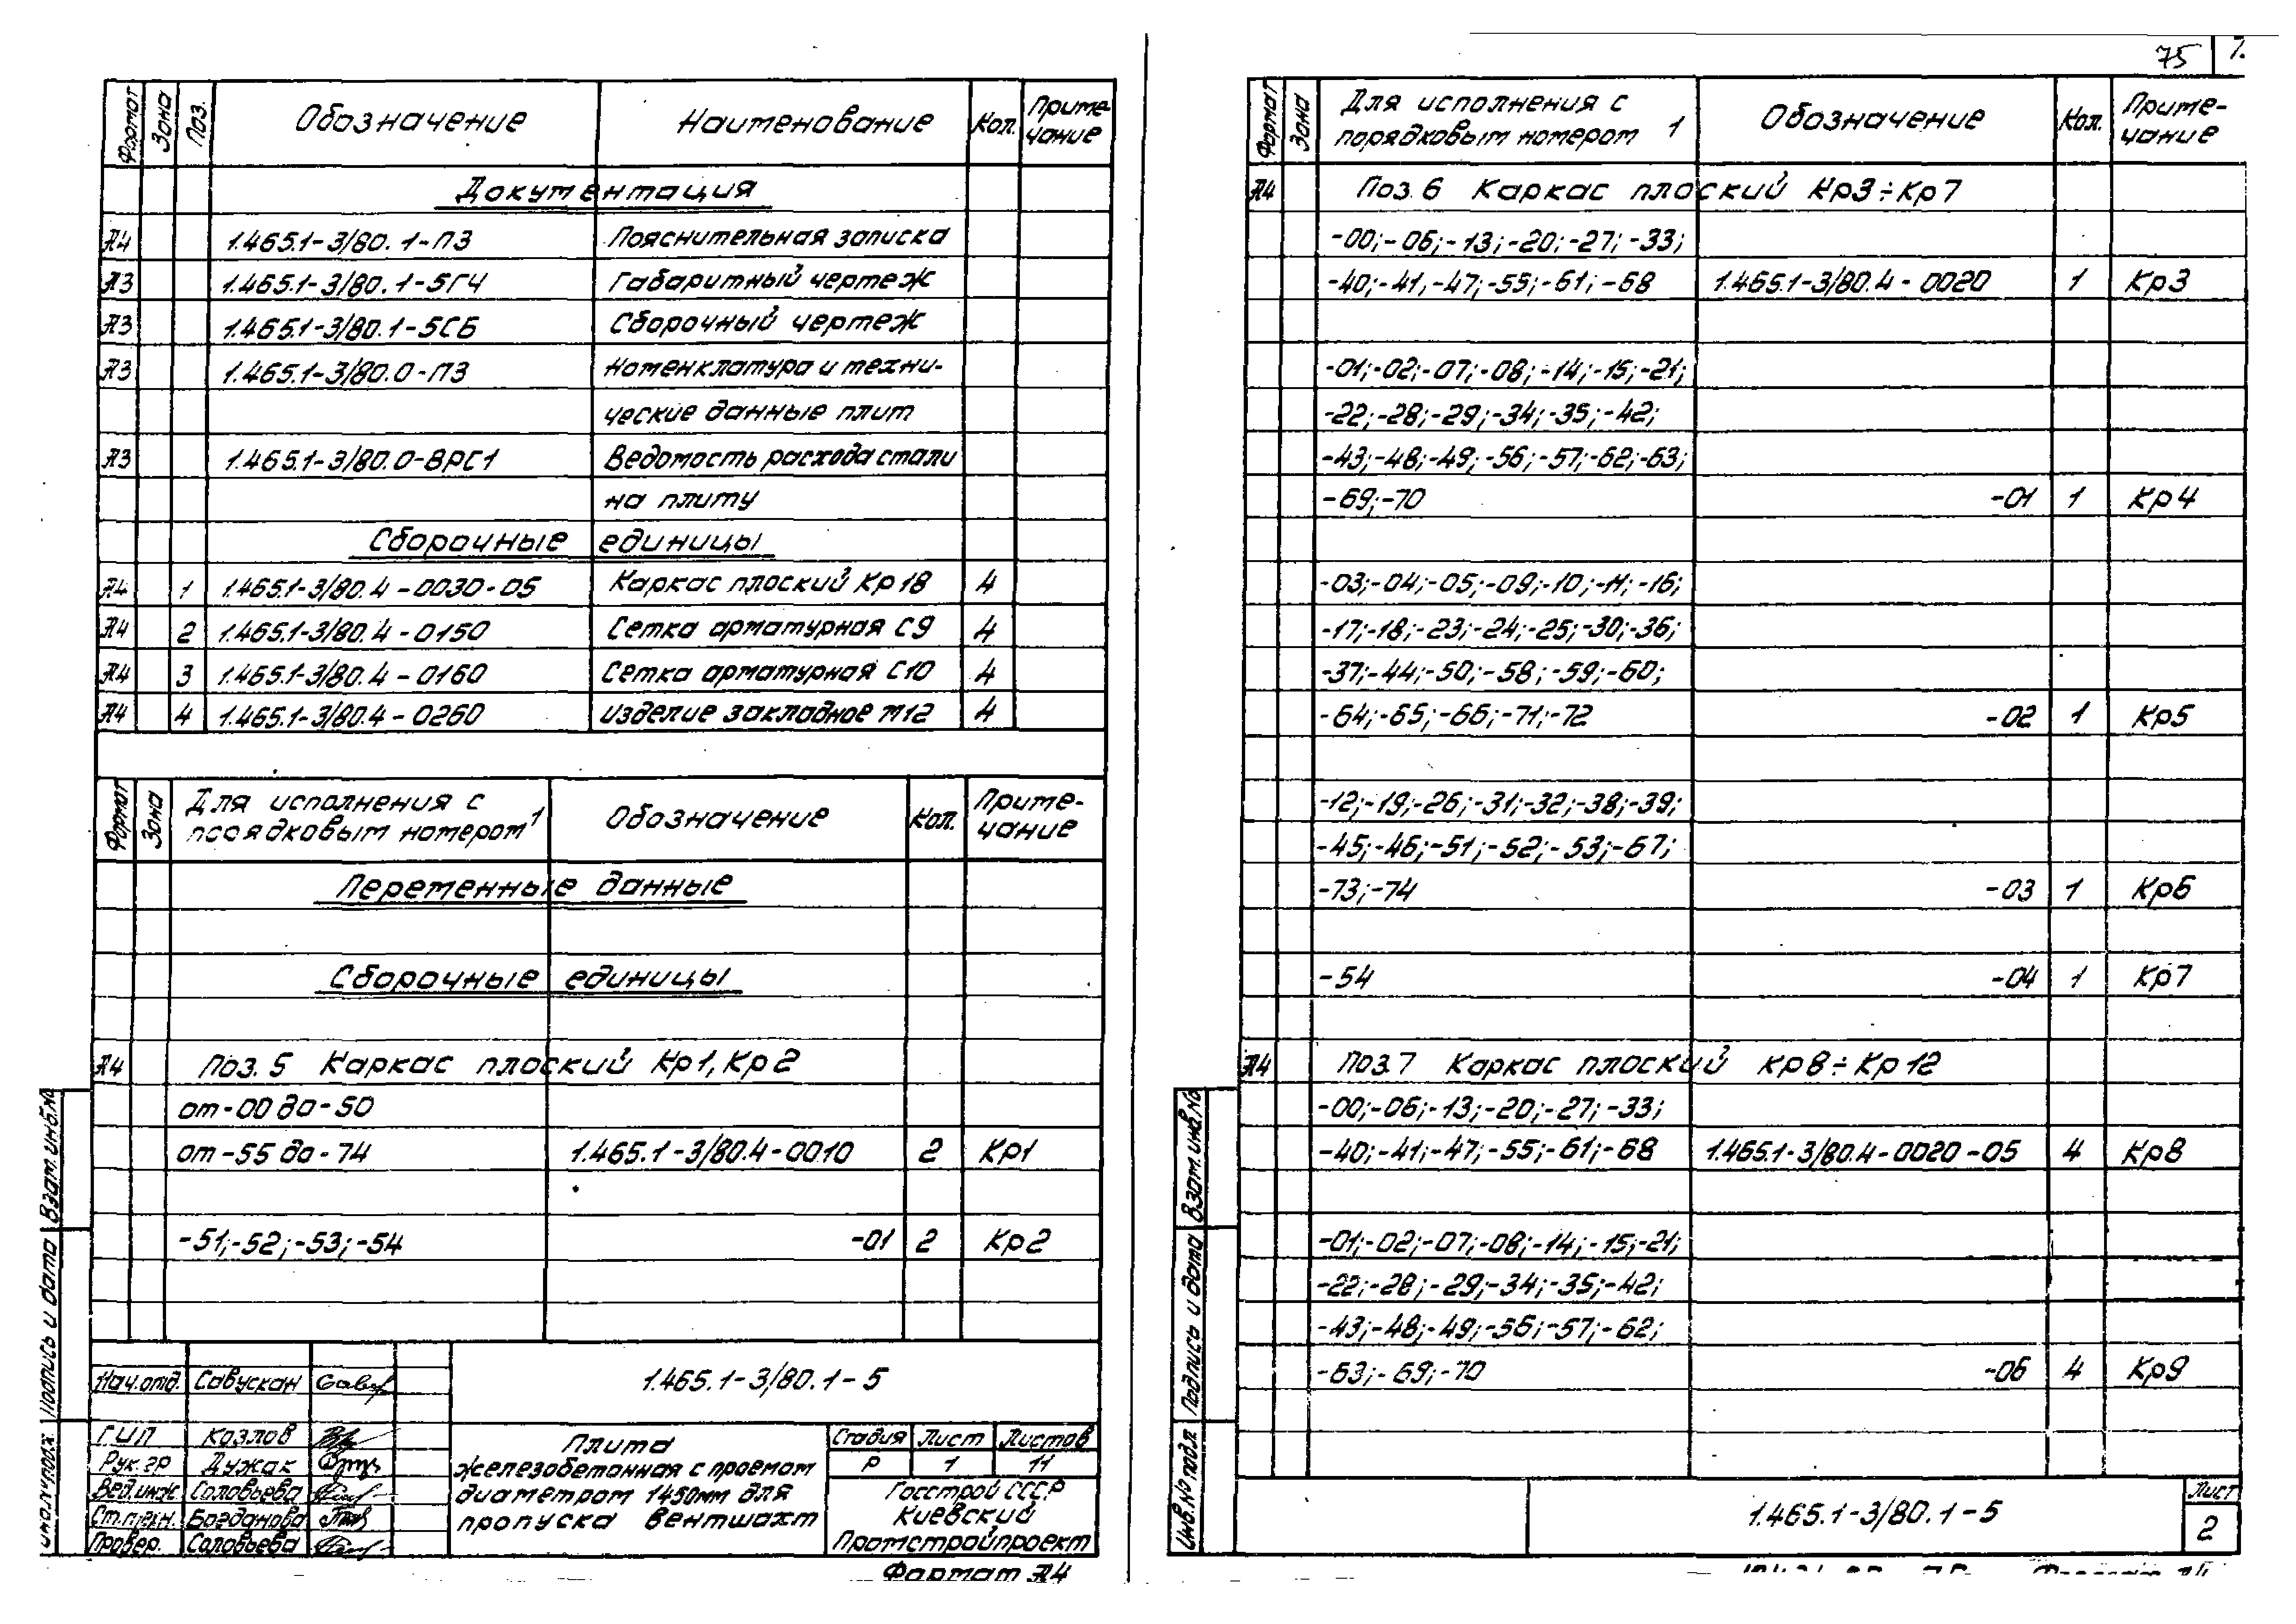 Формат Зона Поз. Обозначение Наименование Кол. Приме-
чание
Документация
А4 1.465.1-3/80.1-ПЗ Пояснительная записка
А3 1.465.1-3/80.1-5ГЧ Габаритный чертеж
А3 1.465.1-3/80.1-5СБ Сборочный чертеж
А3 1.465.1-3/80.0-ПЗ Номенклатура и техни-
ческие данные плит
А3 1.465.1-3/80.0-ВРС1 Ведомость расхода стали
на плиту
Сборочные единицы
А4 1 1.465.1-3/80.4-0030-05 Каркас плоский Кр18 4
А4 2 1.465.1-3/80.4-0150 Сетка арматурная С9 4
А4 3 1.465.1-3/80.4-0160 Сетка арматурная С10 4
А4 4 1.465.1-3/80.4-0260 Изделие закладное М12 4
Формат Зона Для исполнения с Обозначение Кол. Приме-
порядковым номером 1 чание
Переменные данные
Сборочные единицы
А4 Поз. 5 Каркас плоский Кр1, Кр2
от -00 до -50
от -55 до -74 1.465.1-3/80.4-0010 2 Кр1
-51;-52;-53;-54 -01 2 Кр2
Взам.инв.№
Подпись и дата
Инв.№ подл.
1.465.1-3/80.1-5
Нач.отд. Савускан
ГИП Козлов
Рук.гр Дужак
Вед.инж. Соловьева
Ст.техн. Богданова
Провер. Соловьева
Плита
железобетонная с проемом
диаметром 1450мм для
пропуска вентшахт
Стадия Лист Листов
Р 1 11
Госстрой СССР
Киевский
Промстройпроект
Формат А4
75
Формат Зона Для исполнения с Обозначение Кол. Приме-
порядковым номером 1 чание
А4 Поз. 6 Каркас плоский Кр3÷Кр7
-00;-06;-13;-20;-27;-33;
-40;-41,-47;-55;-61;-68 1.465.1-3/80.4-0020 1 Кр3
-01;-02;-07;-08;-14;-15;-21;
-22;-28;-29;-34;-35;-42;
-43;-48;-49;-56;-57;-62;-63;
-69;-70 -01 1 Кр4
-03;-04;-05;-09;-10;-11;-16;
-17;-18;-23;-24;-25;-30;-36;
-37;-44;-50;-58;-59;-60;
-64;-65;-66;-71;-72 -02 1 Кр5
-12;-19;-26;-31;-32;-38;-39;
-45;-46;-51;-52;-53;-67;
-73;-74 -03 1 Кр6
-54 -04 1 Кр7
А4 Поз.7 Каркас плоский Кр8÷Кр12
-00;-06;-13;-20;-27;-33;
-40;-41;-47;-55;-61;-68 1.465.1-3/80.4-0020-05 4 Кр8
-01;-02;-07;-08;-14;-15;-21;
-22;-28;-29;-34;-35;-42;
-43;-48;-49;-56;-57;-62;
-63;-69;-70 -06 4 Кр9
Взам.инв.№
Подпись и дата
Инв.№ подл
1.465.1-3/80.1-5
Лист
2